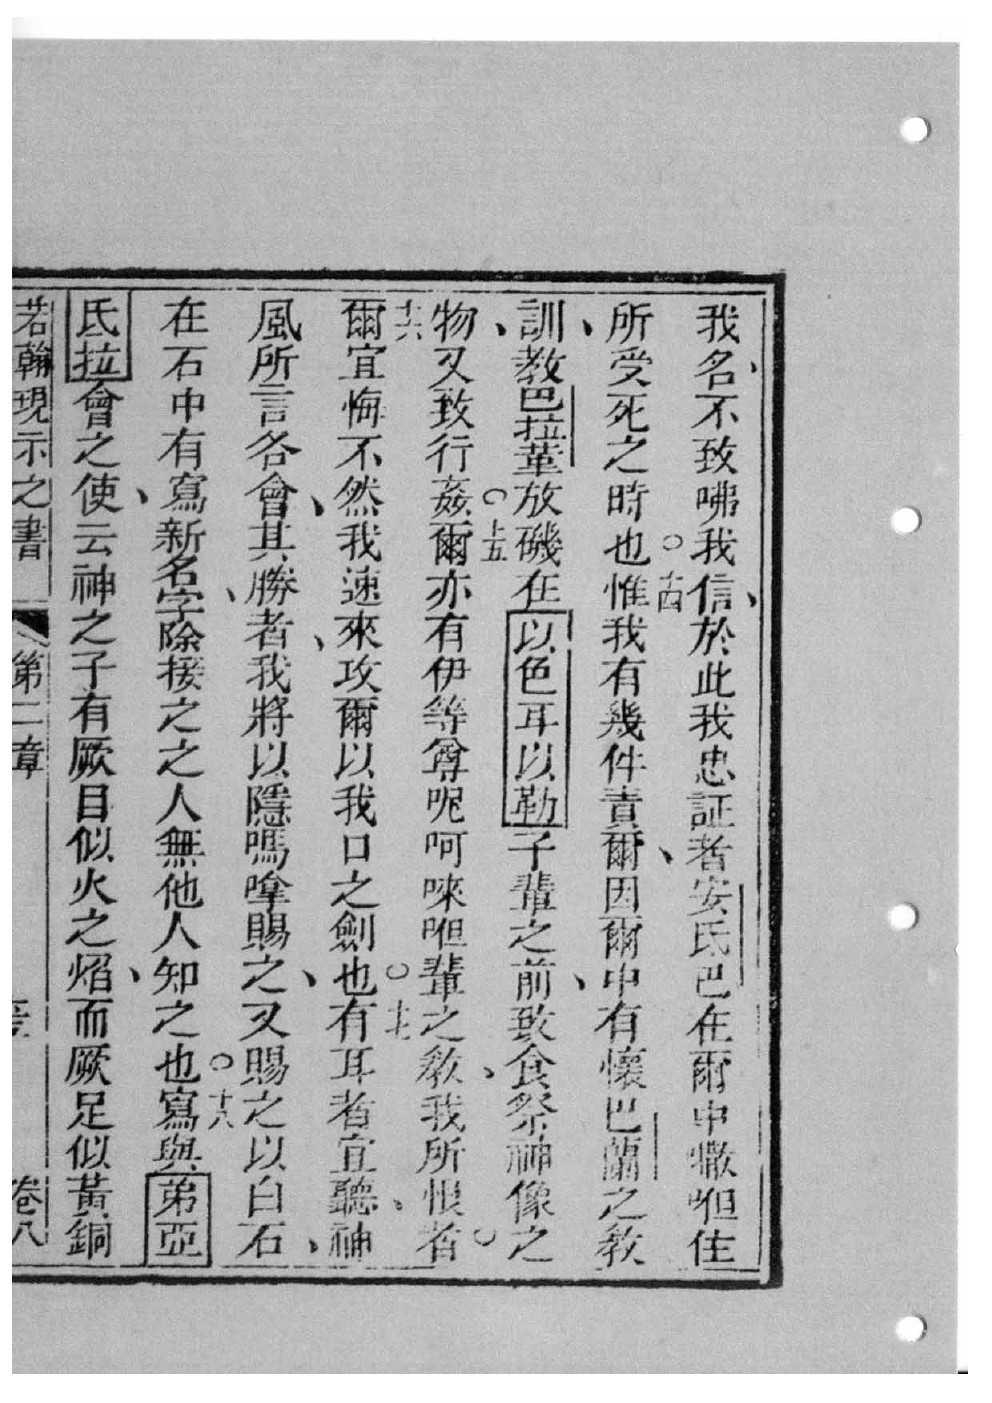 我名、不致咈我信、於此我忠証者安氏巴在爾中㘔呾住
所受死之時也○十四惟我有幾件責爾、因爾中有懷巴蘭之教
訓、教巴拉葷放磯在以色耳以勒子輩之前、致食祭神像之
物、又致行姦○十五爾亦有伊等尊呢呵唻呾輩之教、我所恨者○
十六爾宜悔不然我速來攻爾以我口之劍也○十七有耳者宜聽、神
風所言各會、其勝者、我將以隱嗎嗱賜之、又賜之以白石、
在石中有寫新名字、除接之之人無他人知之也○十八寫與弟亞
氏拉會之使、云神之子有厥目似火之焰、而厥足似黃銅
若翰現示之書 第二章 卷八